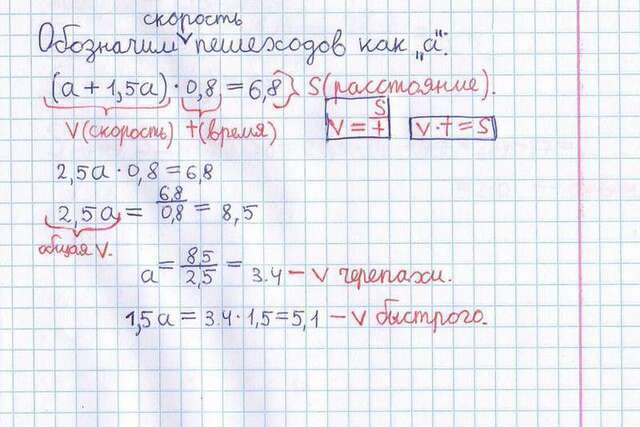 скорость
Обозначим пешеходов как „а".
(а + 1,5а) · 0,8 = 6,8 } S (расстояние).
V (скорость) t (время) V = S/t V · t = S
2,5а · 0,8 = 6,8
2,5а = 6,8/0,8 = 8,5
общая V.
а = 8,5/2,5 = 3.4 – V черепахи.
1,5а = 3.4 · 1,5 = 5,1 – V быстрого.